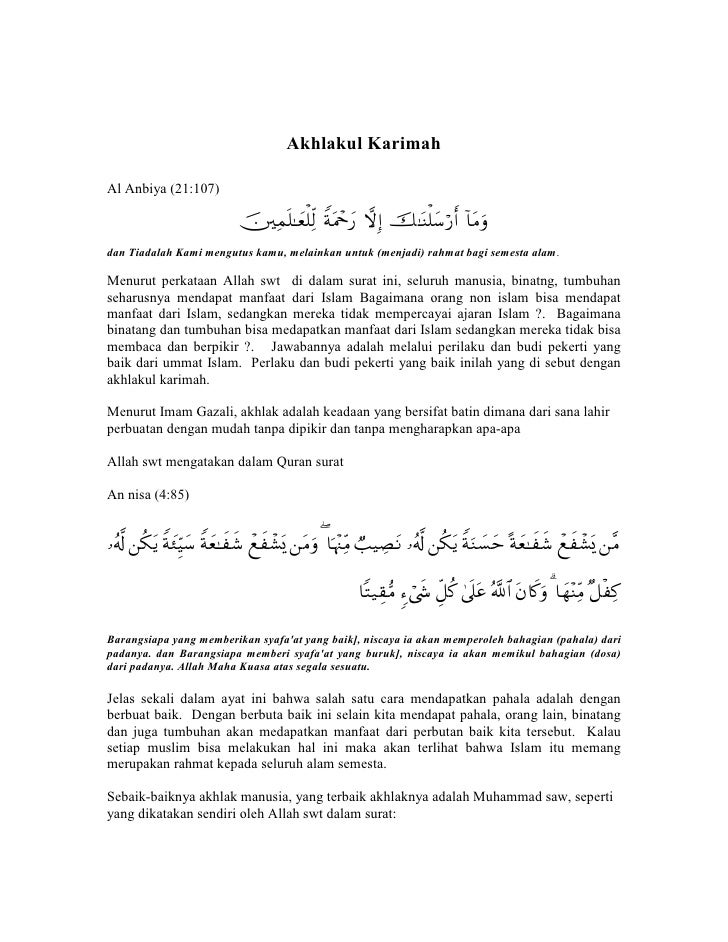 Akhlakul Karimah
Al Anbiya (21:107)
وَمَآ أَرْسَلْنَـٰكَ إِلَّا رَحْمَةً لِّلْعَـٰلَمِينَ
dan Tiadalah Kami mengutus kamu, melainkan untuk (menjadi) rahmat bagi semesta alam.
Menurut perkataan Allah swt di dalam surat ini, seluruh manusia, binatng, tumbuhan
seharusnya mendapat manfaat dari Islam Bagaimana orang non islam bisa mendapat
manfaat dari Islam, sedangkan mereka tidak mempercayai ajaran Islam ?. Bagaimana
binatang dan tumbuhan bisa medapatkan manfaat dari Islam sedangkan mereka tidak bisa
membaca dan berpikir ?. Jawabannya adalah melalui perilaku dan budi pekerti yang
baik dari ummat Islam. Perlaku dan budi pekerti yang baik inilah yang di sebut dengan
akhlakul karimah.
Menurut Imam Gazali, akhlak adalah keadaan yang bersifat batin dimana dari sana lahir
perbuatan dengan mudah tanpa dipikir dan tanpa mengharapkan apa-apa
Allah swt mengatakan dalam Quran surat
An nisa (4:85)
مَّن يَشْفَعْ شَفَـٰعَةً حَسَنَةً يَكُن لَّهُۥ نَصِيبٌ مِّنْهَا ۖ وَمَن يَشْفَعْ شَفَـٰعَةً سَيِّئَةً يَكُن لَّهُۥ
كِفْلٌ مِّنْهَا ۗ وَكَانَ ٱللَّهُ عَلَىٰ كُلِّ شَىْءٍ مُّقِيتًا
Barangsiapa yang memberikan syafa'at yang baik], niscaya ia akan memperoleh bahagian (pahala) dari
padanya. dan Barangsiapa memberi syafa'at yang buruk], niscaya ia akan memikul bahagian (dosa)
dari padanya. Allah Maha Kuasa atas segala sesuatu.
Jelas sekali dalam ayat ini bahwa salah satu cara mendapatkan pahala adalah dengan
berbuat baik. Dengan berbuta baik ini selain kita mendapat pahala, orang lain, binatang
dan juga tumbuhan akan medapatkan manfaat dari perbutan baik kita tersebut. Kalau
setiap muslim bisa melakukan hal ini maka akan terlihat bahwa Islam itu memang
merupakan rahmat kepada seluruh alam semesta.
Sebaik-baiknya akhlak manusia, yang terbaik akhlaknya adalah Muhammad saw, seperti
yang dikatakan sendiri oleh Allah swt dalam surat: